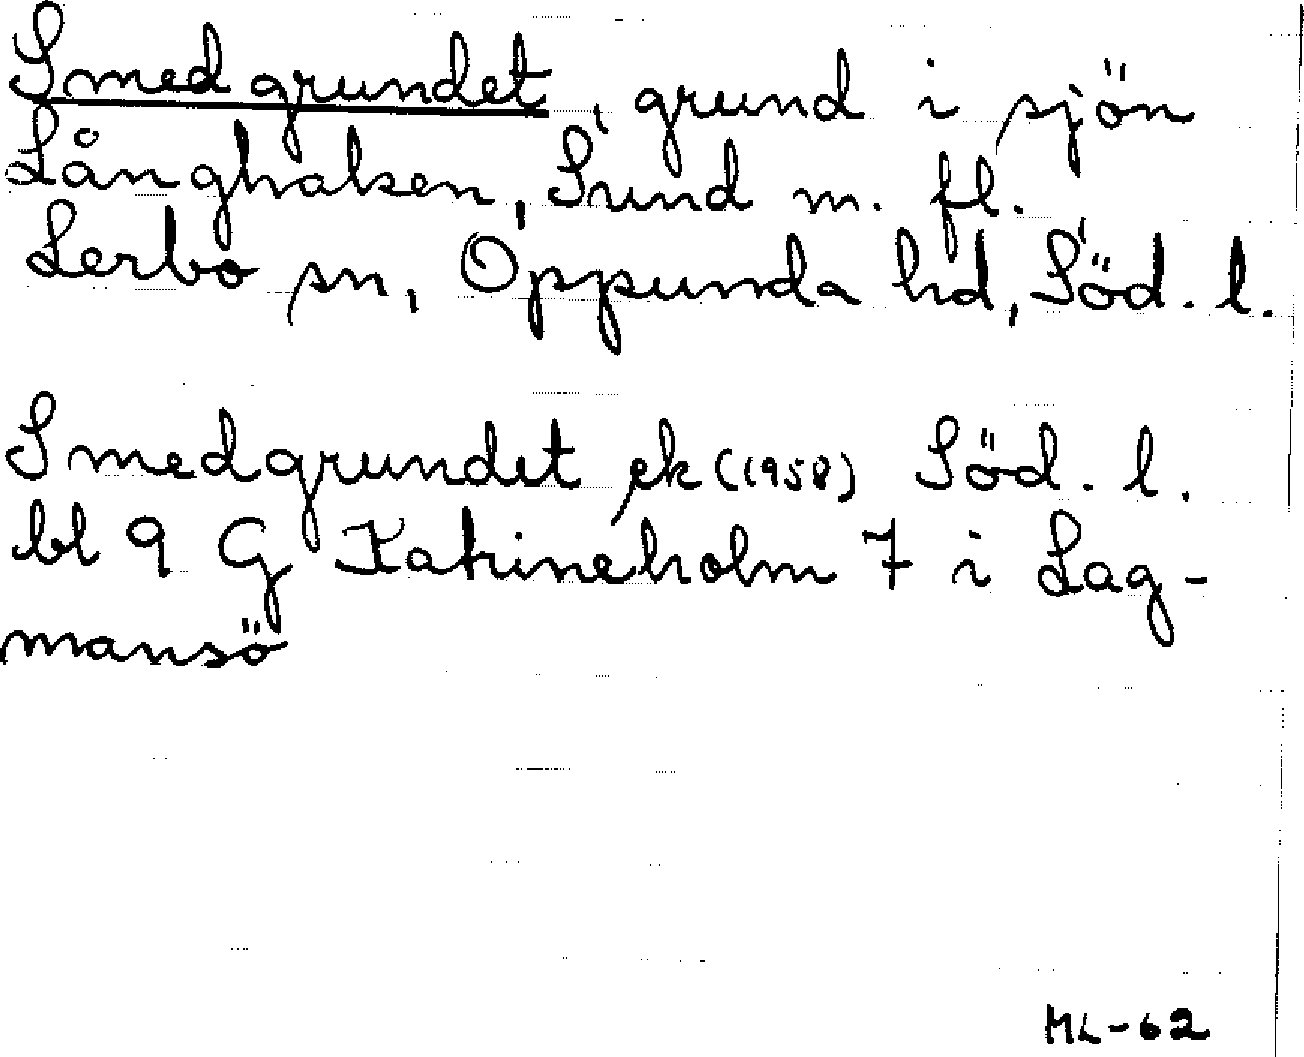 Smedgrundet, grund i sjön
Långhalsen, Sund m. fl.
Lerbo sn, Oppunda hd, Söd. l.
Smedgrundet ek (1958) Söd. l.
bl 9 G Katrineholm 7 i Lag-
mansö
ML-62